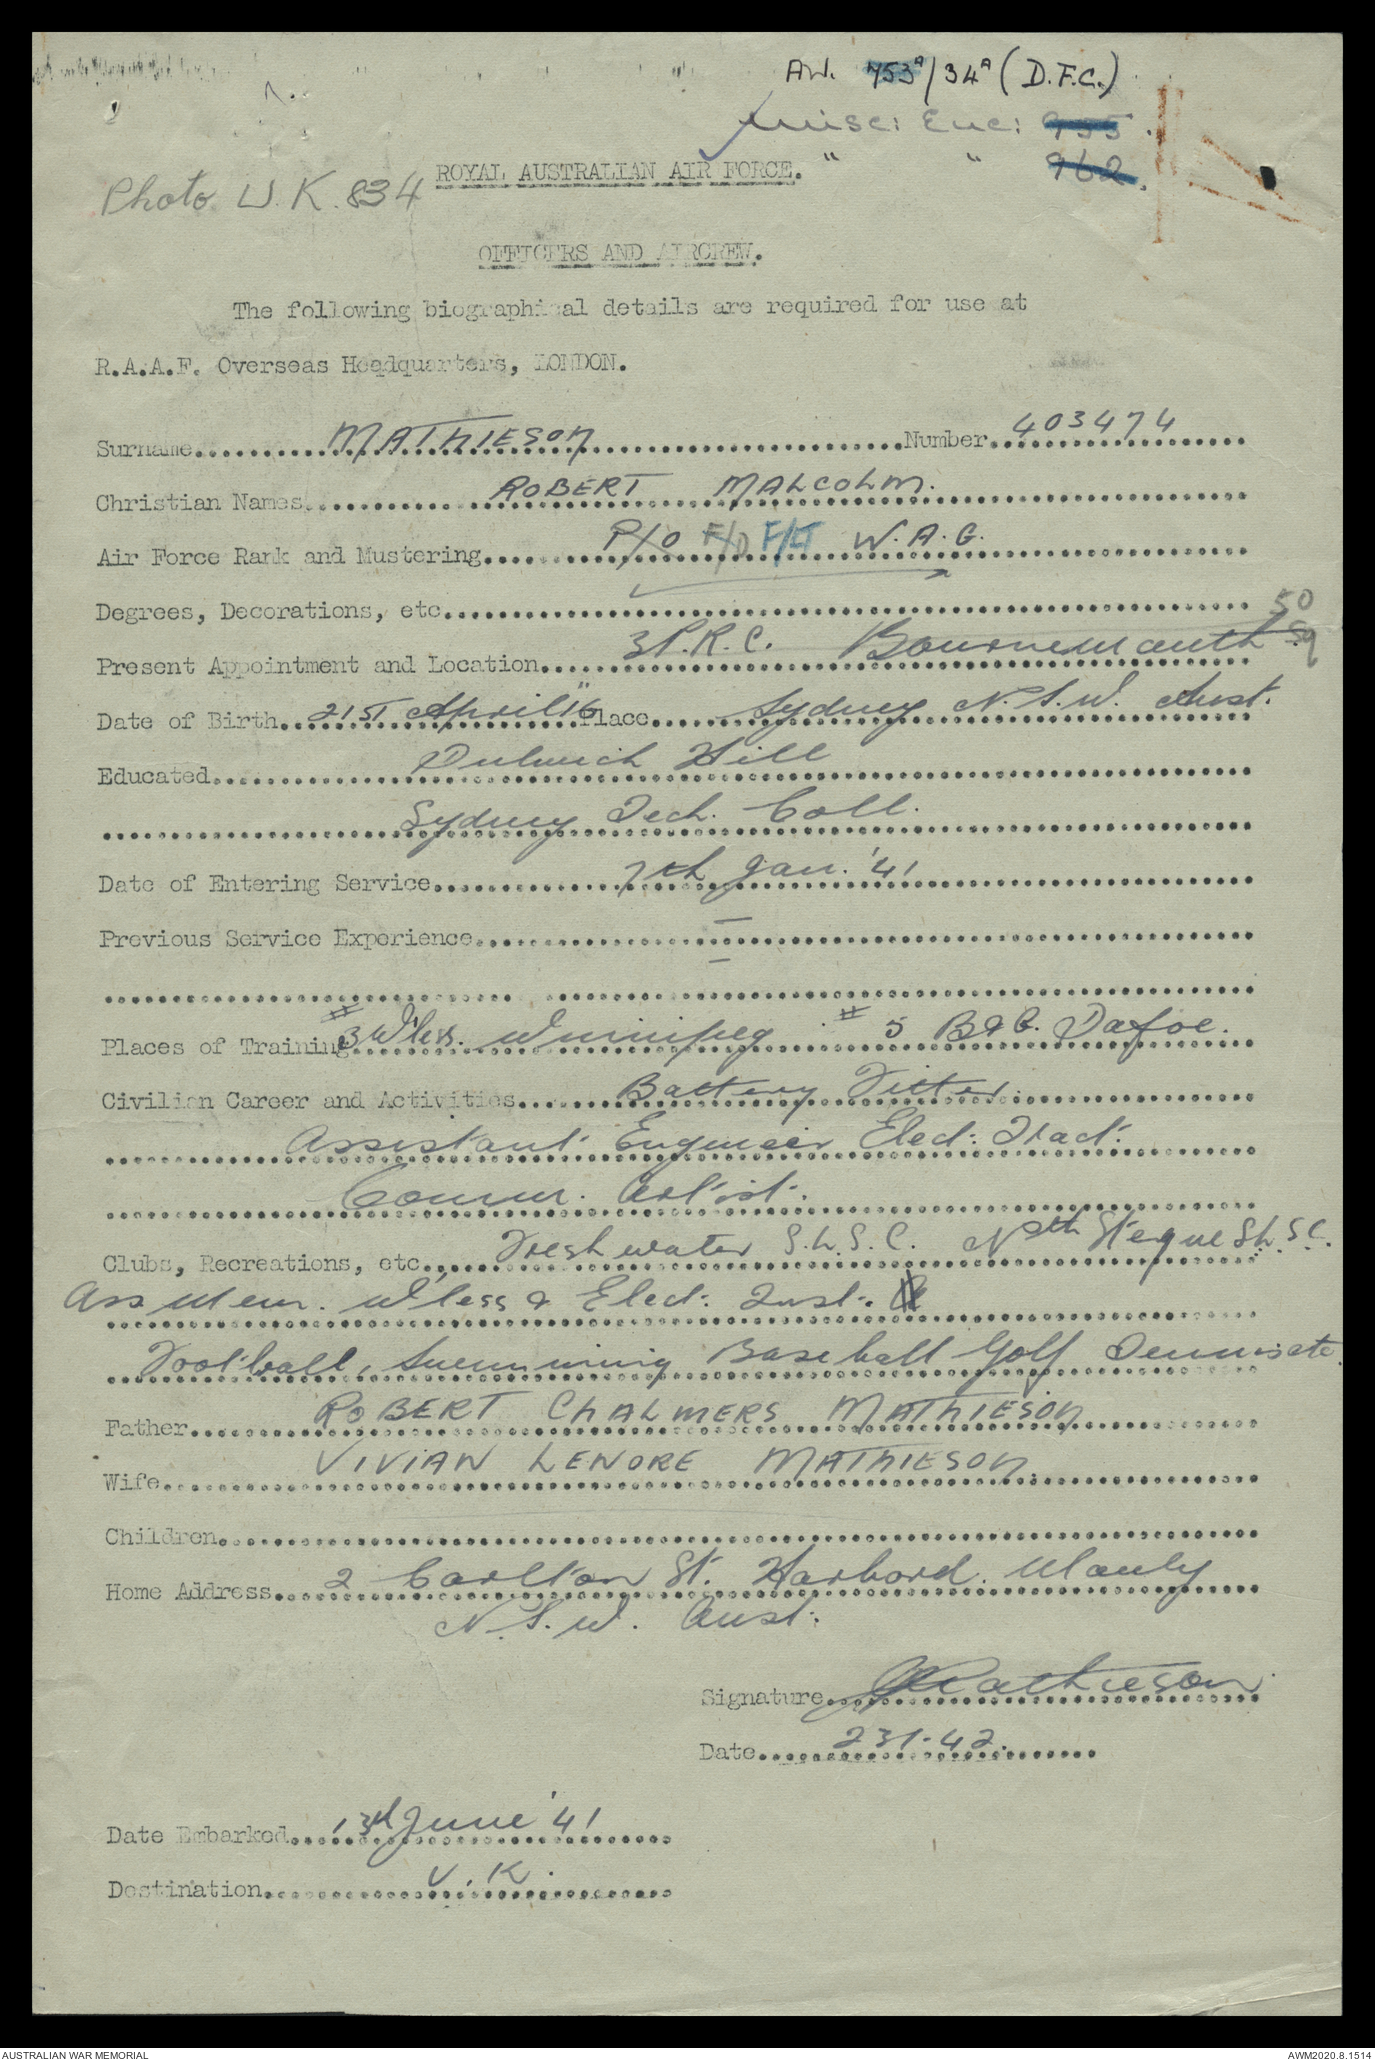 AW. 753A/34A (D.F.C.)
Misc: Enc: 955.
" " 962.
Photo U.K. 834
ROYAL AUSTRALIAN AIR FORCE.
OFFICERS AND AIRCREW.
The following biographical details are required for use at
R.A.A.F. Overseas Headquarters, LONDON.
Surname MATHIESON Number 403474
Christian Names ROBERT MALCOLM.
Air Force Rank and Mustering P/O F/O F/LT W.A.G.
Degrees, Decorations, etc.
50
Present Appointment and Location 3 P.R.C. Bournemouth Sq
Date of Birth 21ST April '16 Place Sydney N.S.W. Aust.
Educated Dulwich Hill
Sydney Tech. Coll.
Date of Entering Service 7th Jan. '41
Previous Service Experience —
—
Places of Training #3 W'less. Winnipeg # 5 B&G. Dafoe.
Civilian Career and Activities Battery Fitter.
Assistant Engineer Elect. Tract.
Comm. Artist.
Clubs, Recreations, etc. Freshwater S.L.S.C. Nth Steyne S.L.S.C.
Ass Mem. W'less & Elect. Inst.
Football, Swimming Baseball Golf Tennis etc.
Father ROBERT CHALMERS MATHIESON
Wife VIVIAN LENORE MATHIESON.
Children
Home Address 2 Carlton St. Harbord. Manly
N.S.W. Aust.
Signature Mathieson
Date 231-42.
Date Embarked 13th June '41
Destination U.K.
AUSTRALIAN WAR MEMORIAL AWM2020.8.1514